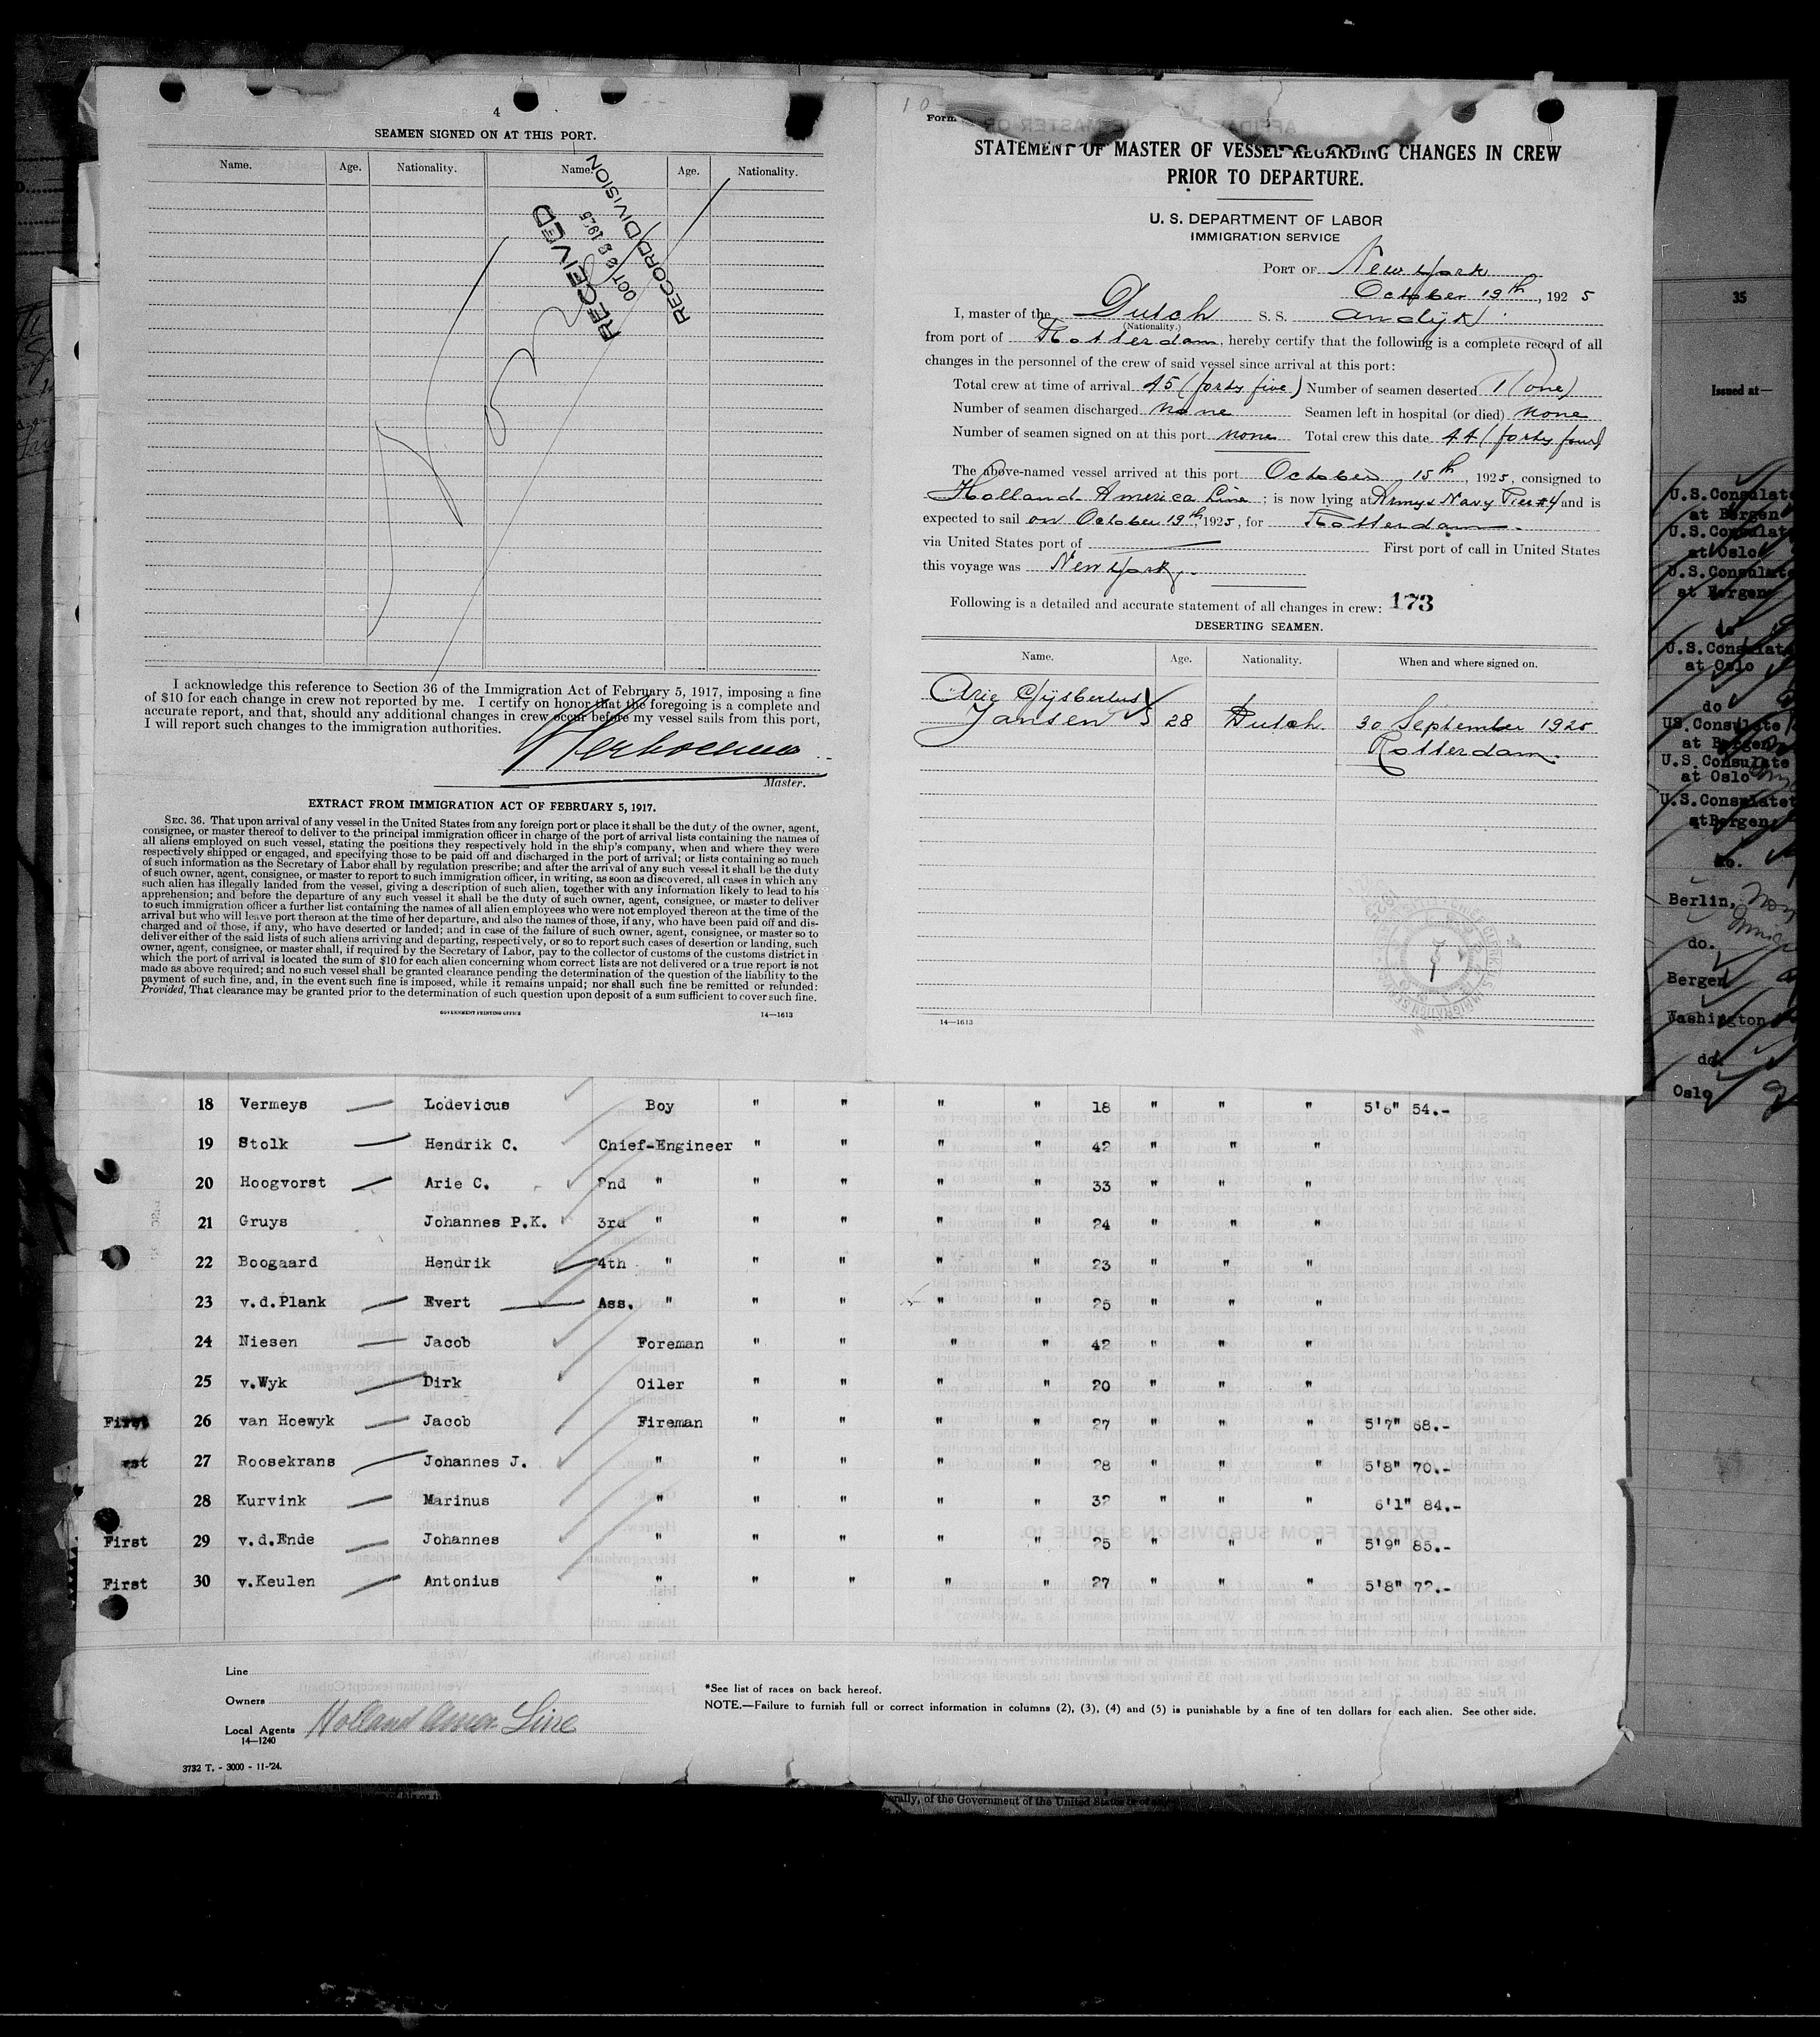 4
SEAMEN SIGNED ON AT THIS PORT.
Name. Age. Nationality. Name. Age. Nationality.
RECEIVED
OCT 1925
RECORD DIVISION
I acknowledge this reference to Section 36 of the Immigration Act of February 5, 1917, imposing a fine
of $10 for each change in crew not reported by me. I certify on honor that the foregoing is a complete and
accurate report, and that, should any additional changes in crew occur before my vessel sails from this port,
I will report such changes to the immigration authorities.
Master.
EXTRACT FROM IMMIGRATION ACT OF FEBRUARY 5, 1917.
SEC. 36. That upon arrival of any vessel in the United States from any foreign port or place it shall be the duty of the owner, agent,
consignee, or master thereof to deliver to the principal immigration officer in charge of the port of arrival lists containing the names of
all aliens employed on such vessel, stating the positions they respectively hold in the ship's company, when and where they were
respectively shipped or engaged, and specifying those to be paid off and discharged in the port of arrival; or lists containing so much
of such information as the Secretary of Labor shall by regulation prescribe; and after the arrival of any such vessel it shall be the duty
of such owner, agent, consignee, or master to report to such immigration officer, in writing, as soon as discovered, all cases in which any
such alien has illegally landed from the vessel, giving a description of such alien, together with any information likely to lead to his
apprehension; and before the departure of any such vessel it shall be the duty of such owner, agent, consignee, or master to deliver
to such immigration officer a further list containing the names of all alien employees who were not employed thereon at the time of the
arrival but who will leave port thereon at the time of her departure, and also the names of those, if any, who have been paid off and dis-
charged and of those, if any, who have deserted or landed; and in case of the failure of such owner, agent, consignee, or master so to
deliver either of the said lists of such aliens arriving and departing, respectively, or so to report such cases of desertion or landing, such
owner, agent, consignee, or master shall, if required by the Secretary of Labor, pay to the collector of customs of the customs district in
which the port of arrival is located the sum of $10 for each alien concerning whom correct lists are not delivered or a true report is not
made as above required; and no such vessel shall be granted clearance pending the determination of the question of the liability to the
payment of such fine, and, in the event such fine is imposed, while it remains unpaid; nor shall such fine be remitted or refunded:
Provided, That clearance may be granted prior to the determination of such question upon deposit of a sum sufficient to cover such fine.
GOVERNMENT PRINTING OFFICE 14—1613
10
Form
STATEMENT OF MASTER OF VESSEL REGARDING CHANGES IN CREW
PRIOR TO DEPARTURE.
U. S. DEPARTMENT OF LABOR
IMMIGRATION SERVICE
PORT OF New York
October 19th, 1925
I, master of the Dutch S. S. Andijk
(Nationality.)
from port of Rotterdam, hereby certify that the following is a complete record of all
changes in the personnel of the crew of said vessel since arrival at this port:
Total crew at time of arrival 45 (forty five) Number of seamen deserted 1 (one)
Number of seamen discharged none Seamen left in hospital (or died) none
Number of seamen signed on at this port none Total crew this date 44 (forty four)
The above-named vessel arrived at this port October 15th, 1925, consigned to
Holland America Line; is now lying at Army & Navy Pier #4 and is
expected to sail on October 19th, 1925, for Rotterdam.
via United States port of First port of call in United States
this voyage was New York.
Following is a detailed and accurate statement of all changes in crew: 173
DESERTING SEAMEN.
Name. Age. Nationality. When and where signed on.
Arie Gijsbertus
Jansen 28 Dutch. 30 September 1925
Rotterdam.
14—1613
35
Issued at—
U.S.Consulate
at Bergen
U.S.Consulate
at Oslo
U.S.Consulate
at Bergen
do
U.S.Consulate
at Oslo
do
US.Consulate
at Bergen
U.S. Consulate
at Oslo
U.S.Consulate
atBergen
do.
Berlin,
do.
Bergen
Washington
do.
Oslo
18 Vermeys Lodevicus Boy " " " " 18 " " " 5'6" 54.-
19 Stolk Hendrik C. Chief-Engineer " " " " 42 " " "
20 Hoogvorst Arie C. 2nd " " " " " 33 " " "
21 Gruys Johannes P.K. 3rd " " " " " 24 " " "
22 Boogaard Hendrik 4th " " " " " 23 " " "
23 v.d.Plank Evert Ass. " " " " " 25 " " "
24 Niesen Jacob Foreman " " " " 42 " " "
25 v.Wyk Dirk Oiler " " " " 20 " " "
First 26 van Hoewyk Jacob Fireman " " " " 27 " " " 5'7" 68.-
27 Roosekrans Johannes J. " " " " " 28 " " " 5'8" 70.-
28 Kurvink Marinus " " " " " 32 " " " 6'1" 84.-
First 29 v.d.Ende Johannes " " " " " 25 " " " 5'9" 85.-
First 30 v.Keulen Antonius " " " " " 27 " " " 5'8" 72.-
Line
Owners
Local Agents Holland Amer. Line
14—1240
*See list of races on back hereof.
NOTE.—Failure to furnish full or correct information in columns (2), (3), (4) and (5) is punishable by a fine of ten dollars for each alien. See other side.
3732 T. - 3000 - 11-'24.
erally, of the Government of the United States